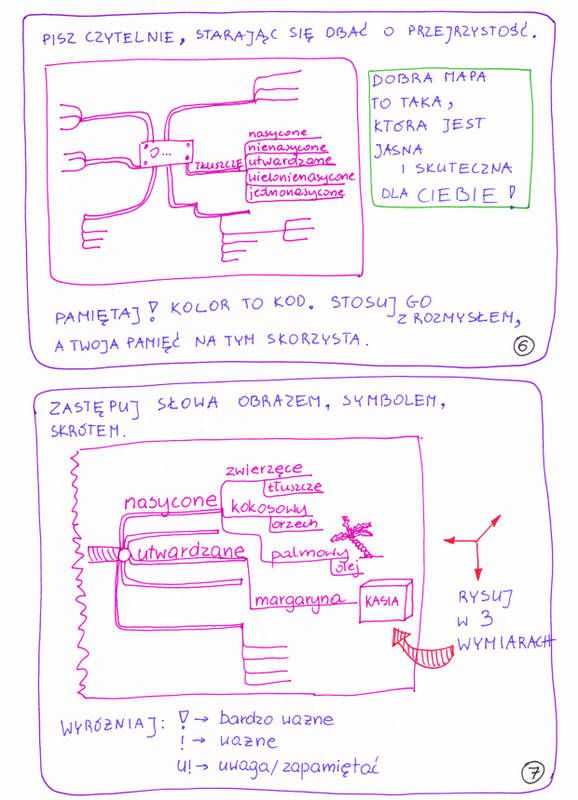 PISZ CZYTELNIE, STARAJĄC SIĘ DBAĆ O PRZEJRZYSTOŚĆ.
nasycone
nienasycone
TŁUSZCZE
utwardzane
wielonienasycone
jednonasycone
DOBRA MAPA
TO TAKA,
KTÓRA JEST
JASNA
I SKUTECZNA
DLA CIEBIE!
PAMIĘTAJ! KOLOR TO KOD. STOSUJ GO
Z ROZMYSŁEM,
A TWOJA PAMIĘĆ NA TYM SKORZYSTA.
6
ZASTĘPUJ SŁOWA OBRAZEM, SYMBOLEM,
SKRÓTEM.
zwierzęce
tłuszcze
nasycone
kokosowy
orzech
utwardzane
palmowy
olej
margaryna
KASIA
RYSUJ
W 3
WYMIARACH
WYRÓŻNIAJ: ! → bardzo ważne
! → ważne
U! → uwaga/zapamiętać
7